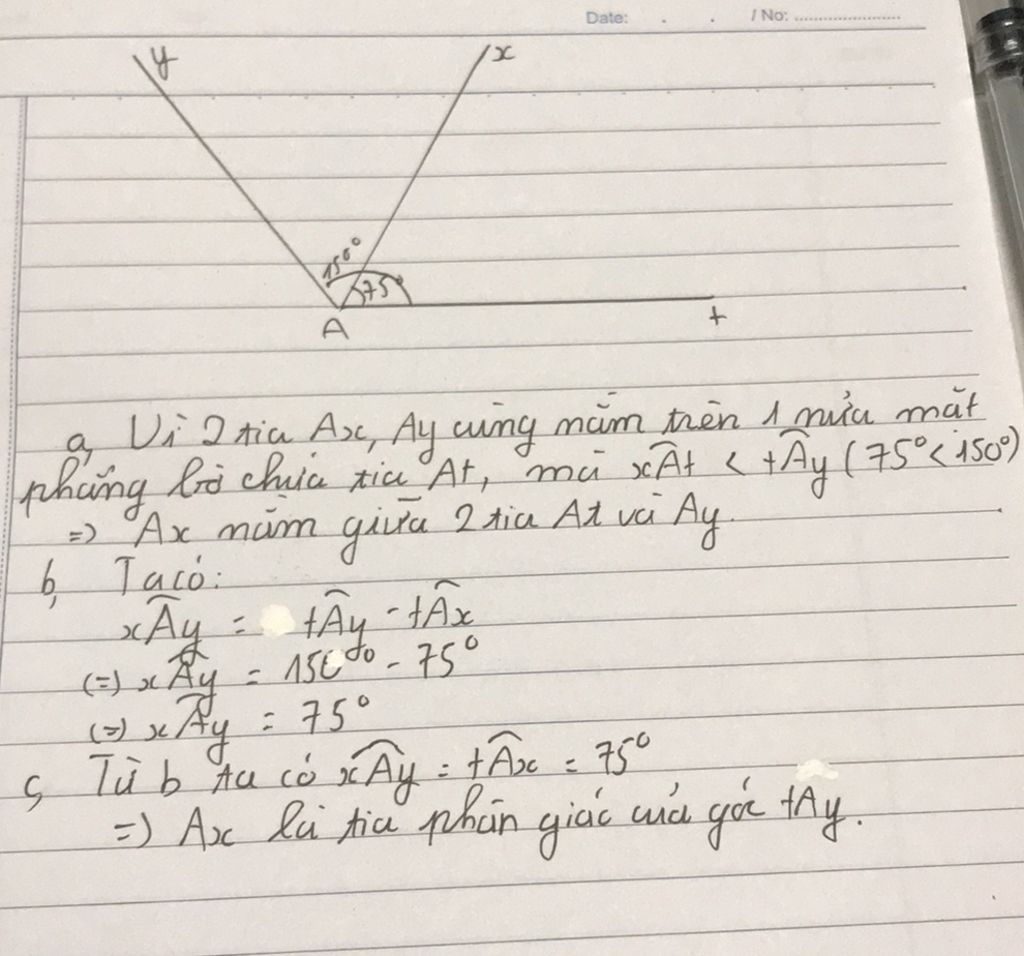 Date: . . / No: ........................
y x
150°
75°
A t
a, Vì 2 tia Ax, Ay cùng nằm trên 1 nửa mặt
phẳng bờ chứa tia At, mà xÂt < tÂy (75° < 150°)
=> Ax nằm giữa 2 tia At và Ay.
b, Ta có:
xÂy = tÂy - tÂx
(=) xÂy = 150° - 75°
(=) xÂy = 75°
c, Từ b ta có xÂy = tÂx = 75°
=) Ax là tia phân giác của góc tAy.